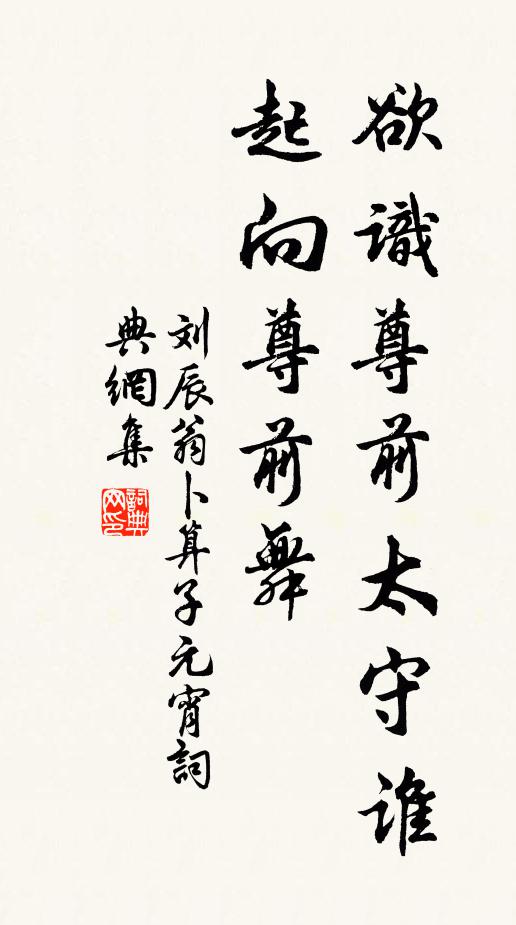 欲識尊前太守誰
起向尊前舞
刘辰翁卜算子元宵詞
典網集
詞典网印